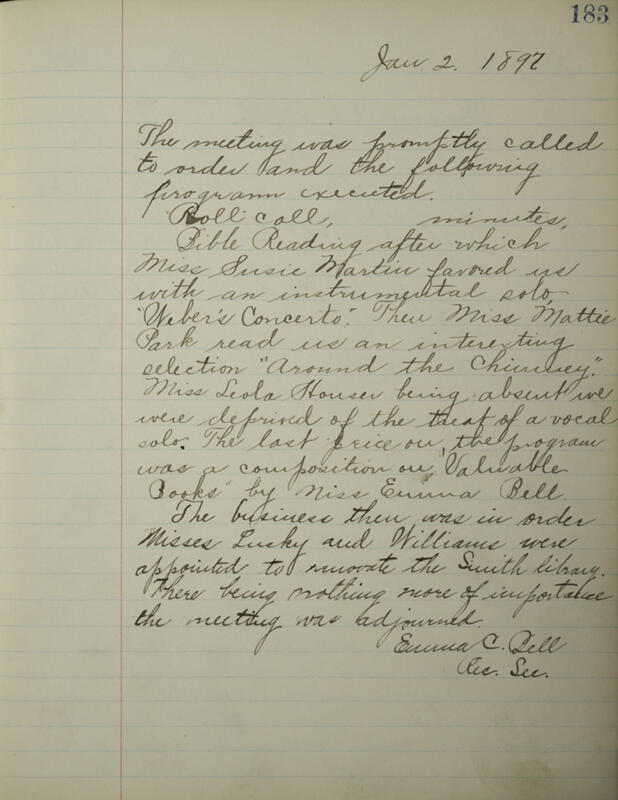 183
Jan. 2. 1897
The meeting was promptly called
to order and the following
program executed.
Roll call, minutes,
Bible Reading after which
Miss Susie Martin favored us
with an instrumental solo,
"Weber's Concerto". Then Miss Mattie
Park read us an interesting
selection "Around the Chimney."
Miss Leola Houser being absent we
were deprived of the treat of a vocal
solo. The last price on the program
was a composition on "Valuable
Books" by Miss Emma Bell.
The business then was in order
Misses Lusky and Williams were
appointed to renovate the Smith library.
There being nothing more of importance
the meeting was adjourned.
Emma C. Bell
Rec. Sec.